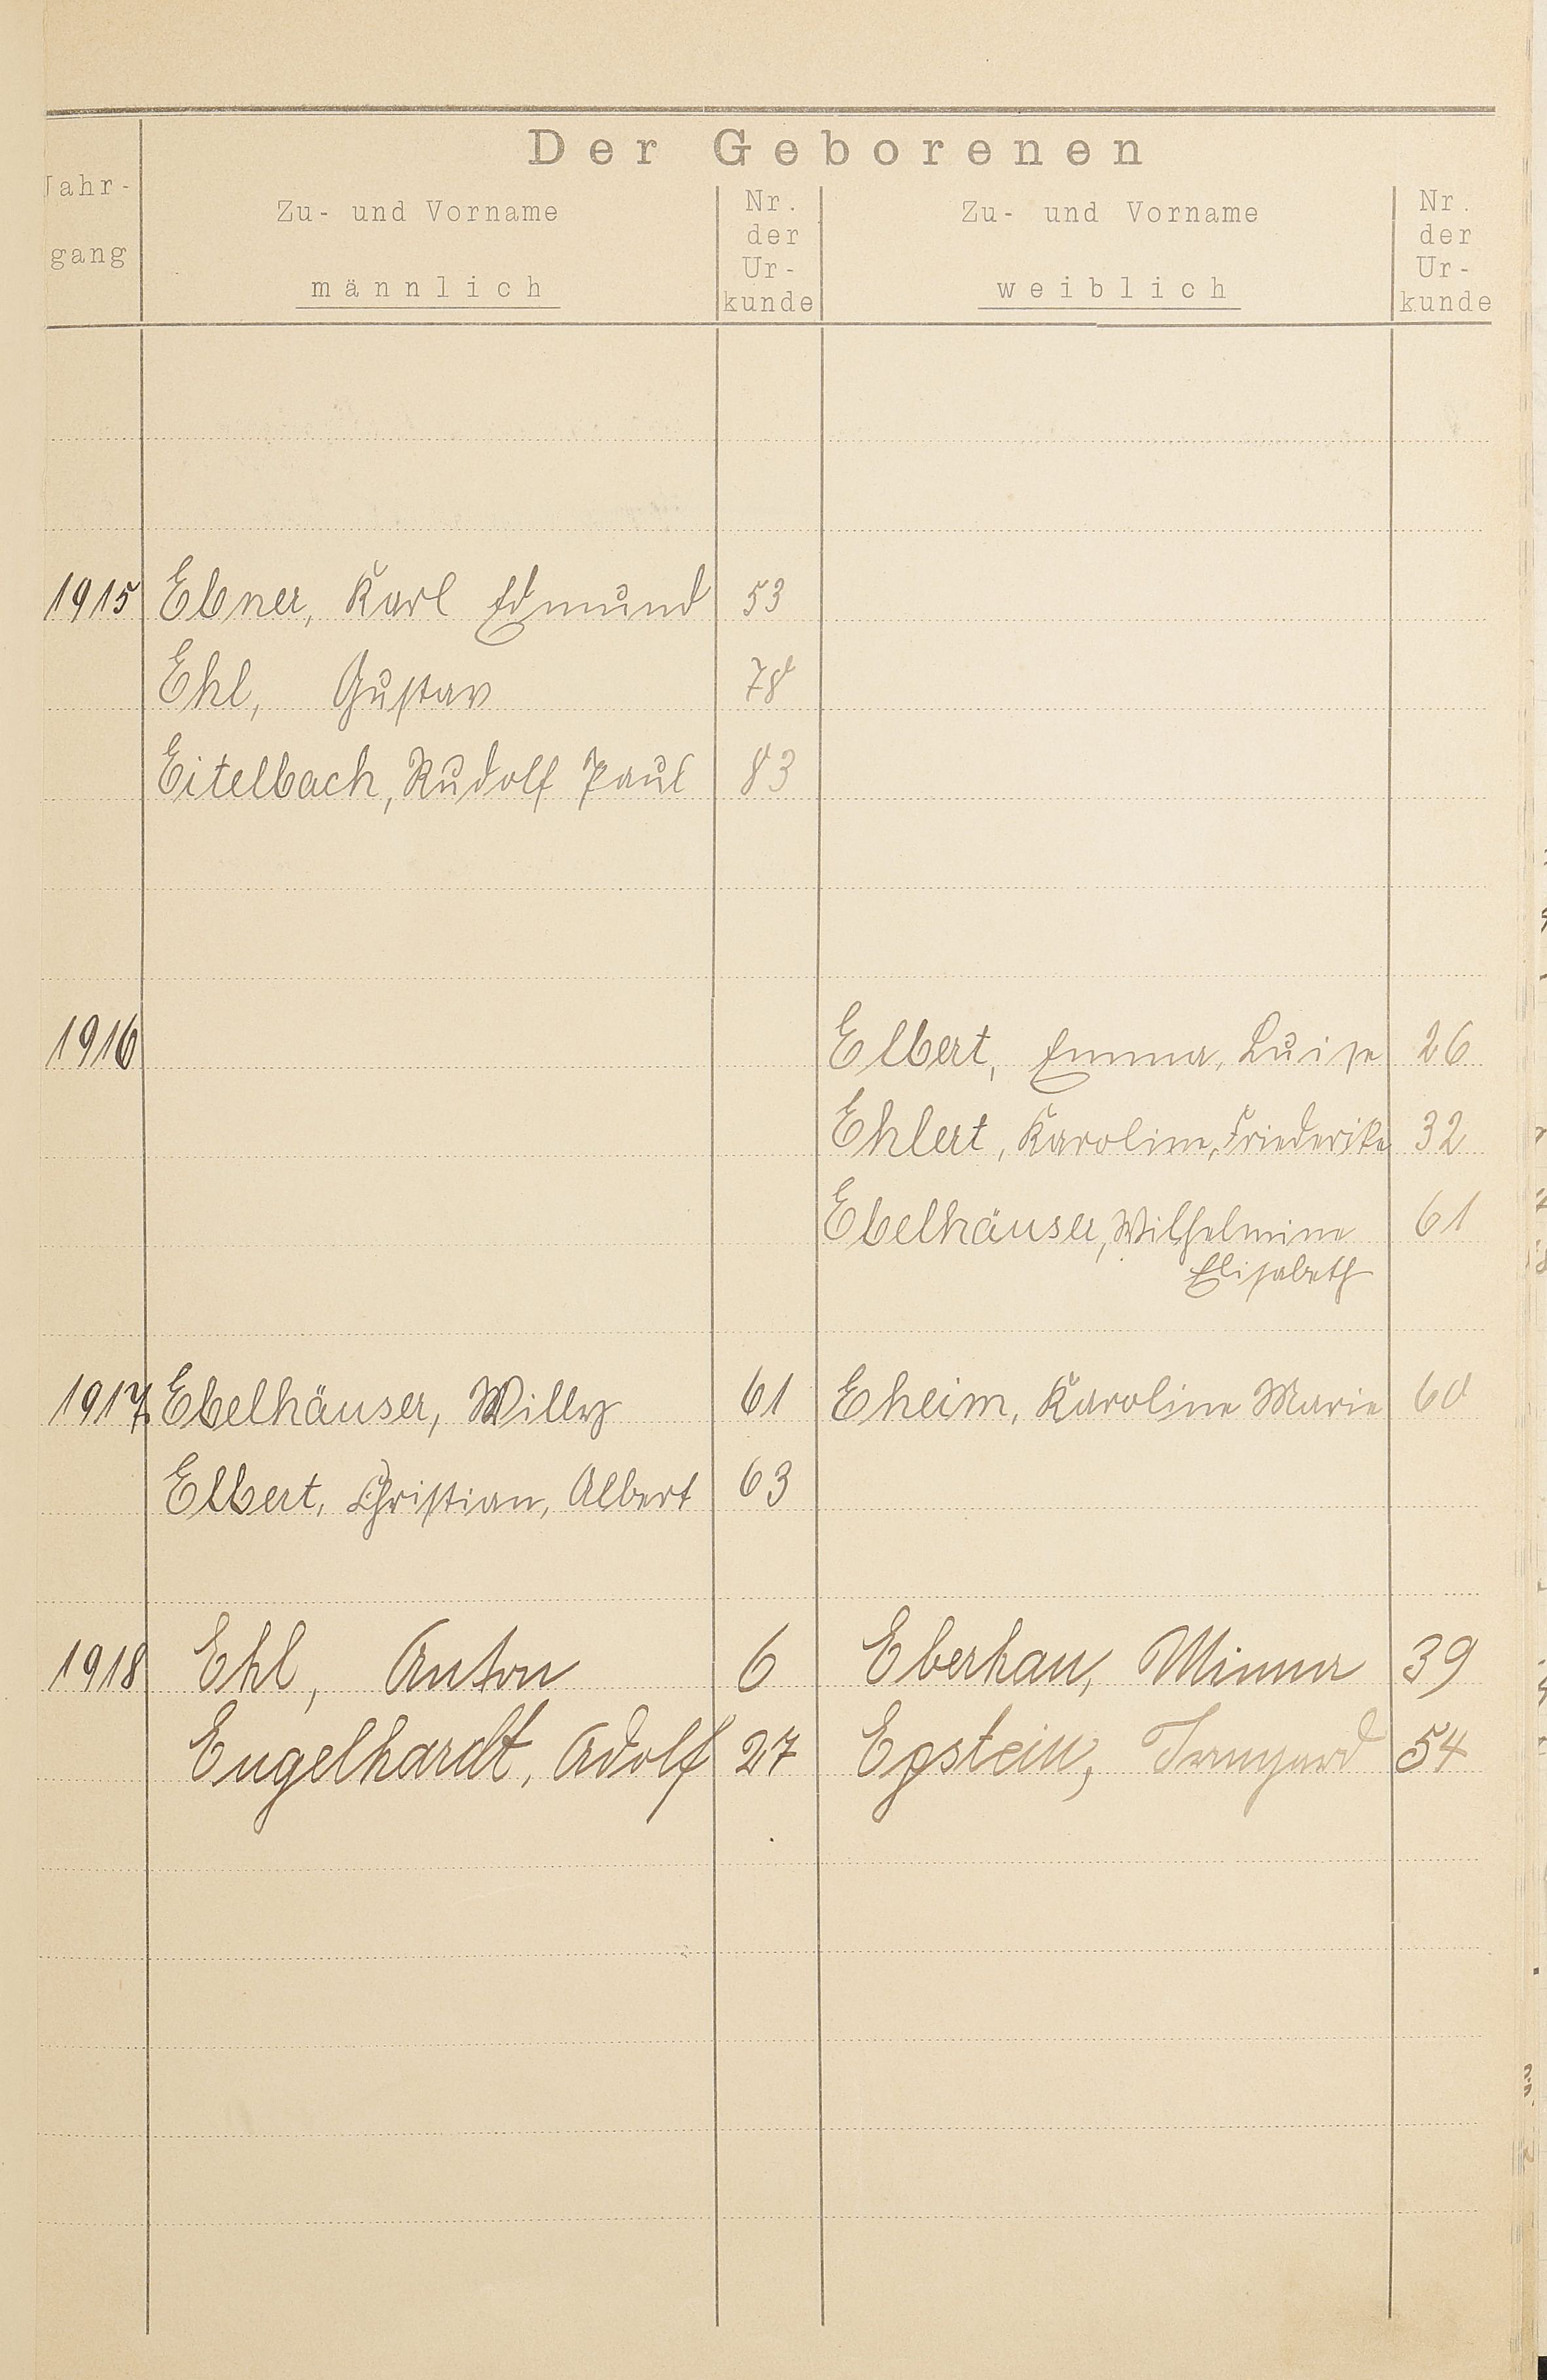 Der Geborenen
Jahr-
gang
Zu- und Vorname
männlich
Nr.
der
Ur-
kunde
Zu- und Vorname
weiblich
Nr.
der
Ur-
kunde
1915 Ebner, Karl Edmund 53
Ehl, Gustav 78
Eitelbach, Rudolf Paul 83
1916 Elbert, Emma, Luise 26
Ehlert, Karoline, Friederike 32
Ebelhäuser, Wilhelmine 61
Elisabeth
1917 Ebelhäuser, Willy 61 Eheim, Karoline Marie 60
Elbert, Christian, Albert 63
1918 Ehl, Anton 6 Eberhau, Minna 39
Engelhardt, Adolf 27 Epstein, Irmgard 54